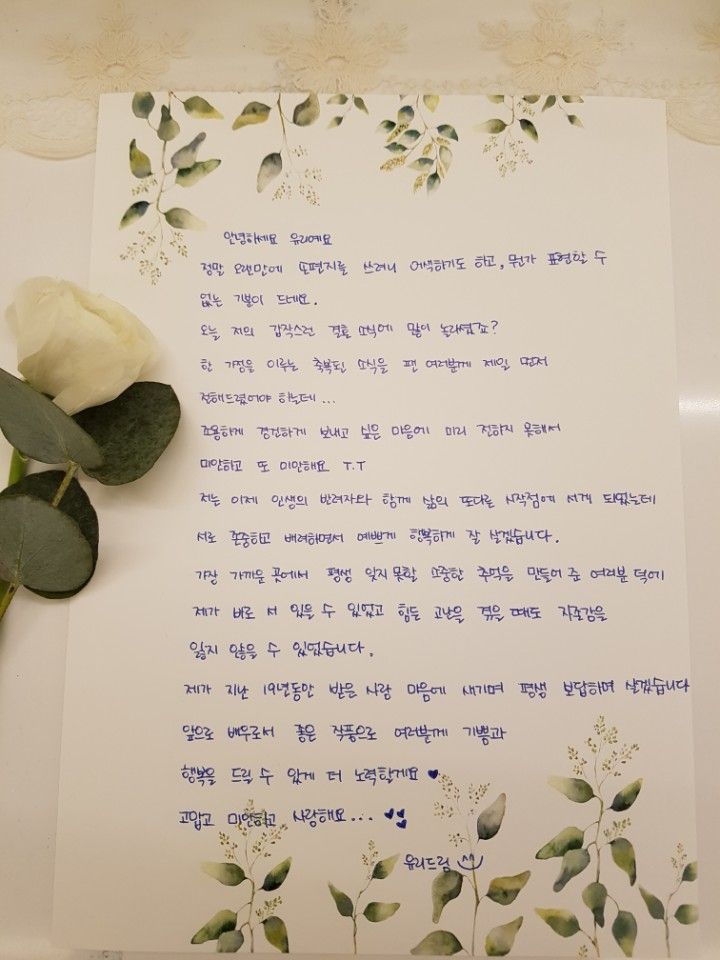 안녕하세요 유리예요
정말 오랜만에 또 편지를 쓰려니 어색하기도 하고, 뭔가 표현할 수
없는 기분이 드네요.
오늘 저의 갑작스런 결혼 소식에 많이 놀라셨죠?
한 가정을 이루는 축복된 소식을 팬 여러분께 제일 먼저
전해드렸어야 하는데...
조용하게 경건하게 보내고 싶은 마음에 미리 전하지 못해서
미안하고 또 미안해요 T.T
저는 이제 인생의 반려자와 함께 삶의 또다른 시작점에 서게 되었는데
서로 존중하고 배려하면서 예쁘게 행복하게 잘 살겠습니다.
가장 가까운 곳에서 평생 잊지못할 소중한 추억을 만들어 준 여러분 덕에
제가 바로 서 있을 수 있었고 힘든 고난을 겪을 때도 자존감을
잃지 않을 수 있었습니다.
제가 지난 19년동안 받은 사랑 마음에 새기며 평생 보답하며 살겠습니다
앞으로 배우로서 좋은 작품으로 여러분께 기쁨과
행복을 드릴 수 있게 더 노력할게요 ♥
고맙고 미안하고 사랑해요... ♥♥♥
유리드림 ^^